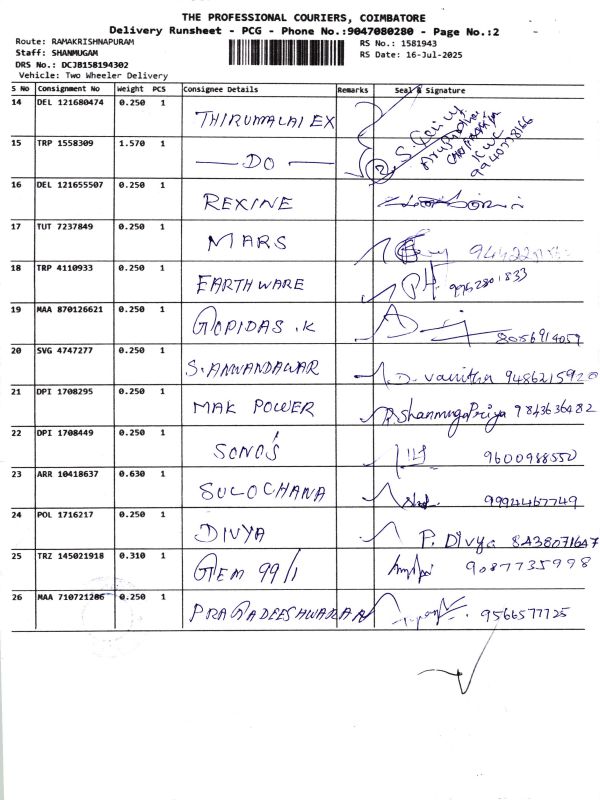 THE PROFESSIONAL COURIERS, COIMBATORE
Delivery Runsheet - PCG - Phone No.:9047080280 - Page No.:2
Route: RAMAKRISHNAPURAM
Staff: SHANMUGAM
DRS No.: DCJB158194302
Vehicle: Two Wheeler Delivery
RS No.: 1581943
RS Date: 16-Jul-2025
S No Consignment No Weight PCS Consignee Details Remarks Seal & Signature
14 DEL 121680474 0.250 1 THIRUMALAI EX
15 TRP 1558309 1.570 1 DO 2
16 DEL 121655507 0.250 1 REXINE
17 TUT 7237849 0.250 1 MARS
18 TRP 4110933 0.250 1 EARTHWARE 9952801833
19 MAA 870126621 0.250 1 GOPIDAS .K 8056914059
20 SVG 4747277 0.250 1 S. ANWANDAWAR D. Vanitha 9486215920
21 DPI 1708295 0.250 1 MAK POWER R Shanmuga Priya 9843636482
22 DPI 1708449 0.250 1 SONO'S 9600988550
23 ARR 10418637 0.630 1 SULOCHANA 9994467749
24 POL 1716217 0.250 1 DIVYA P. Divya 8438071647
25 TRZ 145021918 0.310 1 GEM 99/1 9087735998
26 MAA 710721286 0.250 1 PRAGADEESHWARAN 9566577725